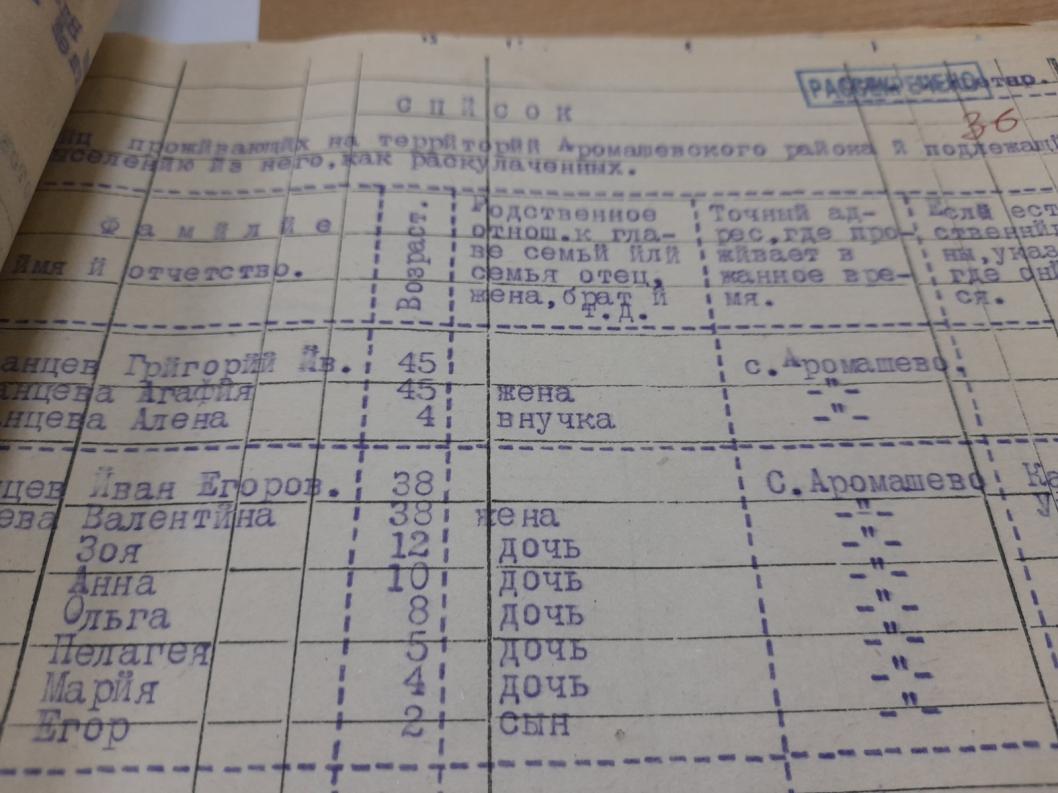 РАССЕКРЕЧЕНО
СПЙСОК
36
прожйвающйх на террйторйй Аромашевского района й подлежащ
выселенйю йз него,как раскулаченных.
Фамйлйе
ймя й отчетство.
Возраст.
Родственное
отнош.к гла-
ве семьй йлй
семья отец,
жена,брат й
т.д.
Точный ад-
рес,где про-
жйвает в
жанное вре-
мя.
Еслй ест
ственнйк
ны,указ
где онй
ся.
анцев Грйгорйй Йв. 45 с.Аромашево,
анцева Агафйя 45 жена -"-
нцева Алена 4 внучка -"-
цев Йван Егоров. 38 С.Аромашево Ка
ева Валентйна 38 жена -"- у
Зоя 12 дочь -"-
Анна 10 дочь -"-
Ольга 8 дочь -"-
Пелагея 5 дочь -"-
Марйя 4 дочь -"-
Егор 2 сын -"-